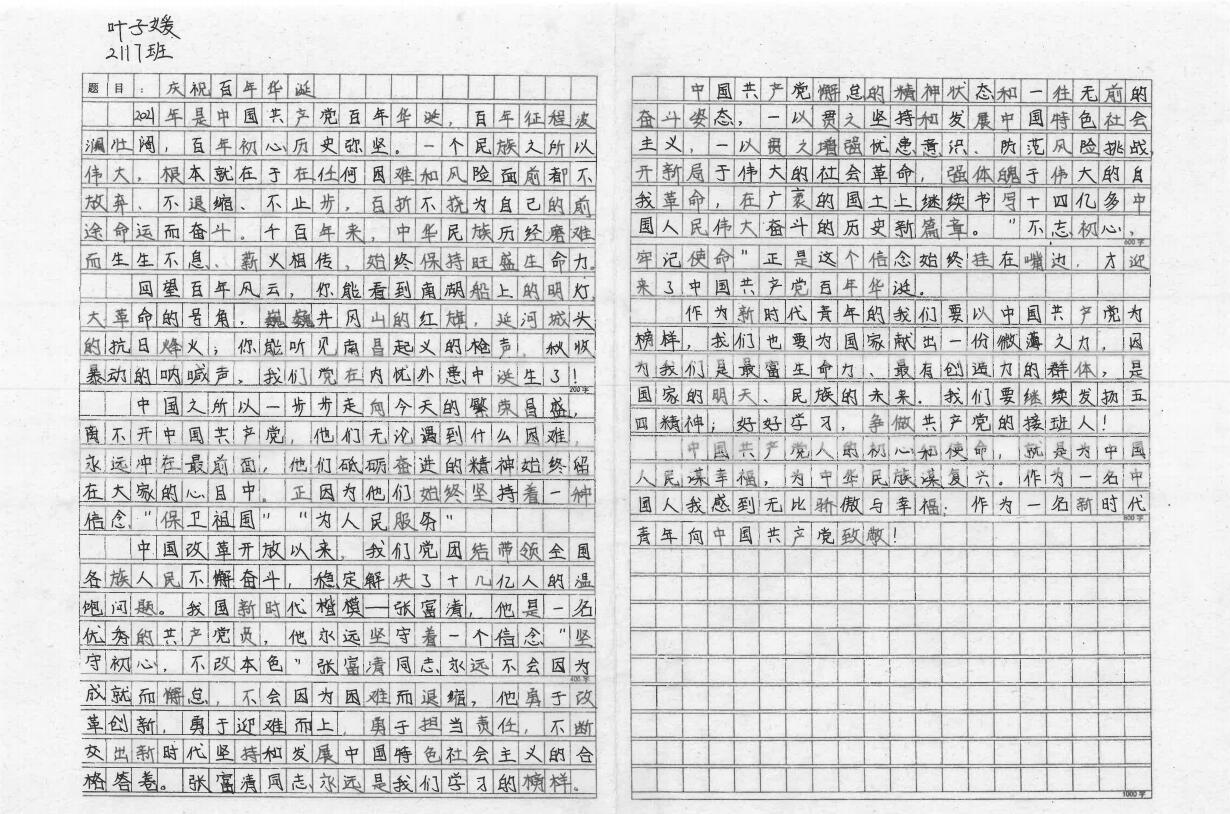 叶子媛
2117班
题目：庆祝百年华诞
2021年是中国共产党百年华诞，百年征程波
澜壮阔，百年初心历史弥坚。一个民族之所以
伟大，根本就在于在任何困难和风险面前都不
放弃、不退缩、不止步，百折不挠为自己的前
途命运而奋斗。千百年来，中华民族历经磨难
而生生不息、薪火相传，始终保持旺盛生命力。
回望百年风云，你能看到南湖船上的明灯，
大革命的号角，巍巍井冈山的红旗，延河城头
的抗日烽火；你能听见南昌起义的枪声，秋收
暴动的呐喊声，我们党在内忧外患中诞生了！
200字
中国之所以一步步走向今天的繁荣昌盛，
离不开中国共产党，他们无论遇到什么困难，
永远冲在最前面，他们砥砺奋进的精神始终留
在大家的心目中。正因为他们始终坚持着一种
信念"保卫祖国""为人民服务"
中国改革开放以来，我们党团结带领全国
各族人民不懈奋斗，稳定解决了十几亿人的温
饱问题。我国新时代楷模—张富清，他是一名
优秀的共产党员，他永远坚守着一个信念"坚
守初心，不改本色"张富清同志永远不会因为
400字
成就而懈怠，不会因为困难而退缩，他勇于改
革创新，勇于迎难而上，勇于担当责任，不断
交出新时代坚持和发展中国特色社会主义的合
格答卷。张富清同志永远是我们学习的榜样。
中国共产党懈怠的精神状态和一往无前的
奋斗姿态，一以贯之坚持和发展中国特色社会
主义，一以贯之增强忧患意识、防范风险挑战，
开新局于伟大的社会革命，强体魄于伟大的自
我革命，在广袤的国土上继续书写十四亿多中
国人民伟大奋斗的历史新篇章。"不忘初心，
600字
牢记使命"正是这个信念始终挂在嘴边，才迎
来了中国共产党百年华诞。
作为新时代青年的我们要以中国共产党为
榜样，我们也要为国家献出一份微薄之力，因
为我们是最富生命力、最有创造力的群体，是
国家的明天、民族的未来。我们要继续发扬五
四精神；好好学习，争做共产党的接班人！
中国共产党人的初心和使命，就是为中国
人民谋幸福，为中华民族谋复兴。作为一名中
国人我感到无比骄傲与幸福；作为一名新时代
800字
青年向中国共产党致敬！
1000字